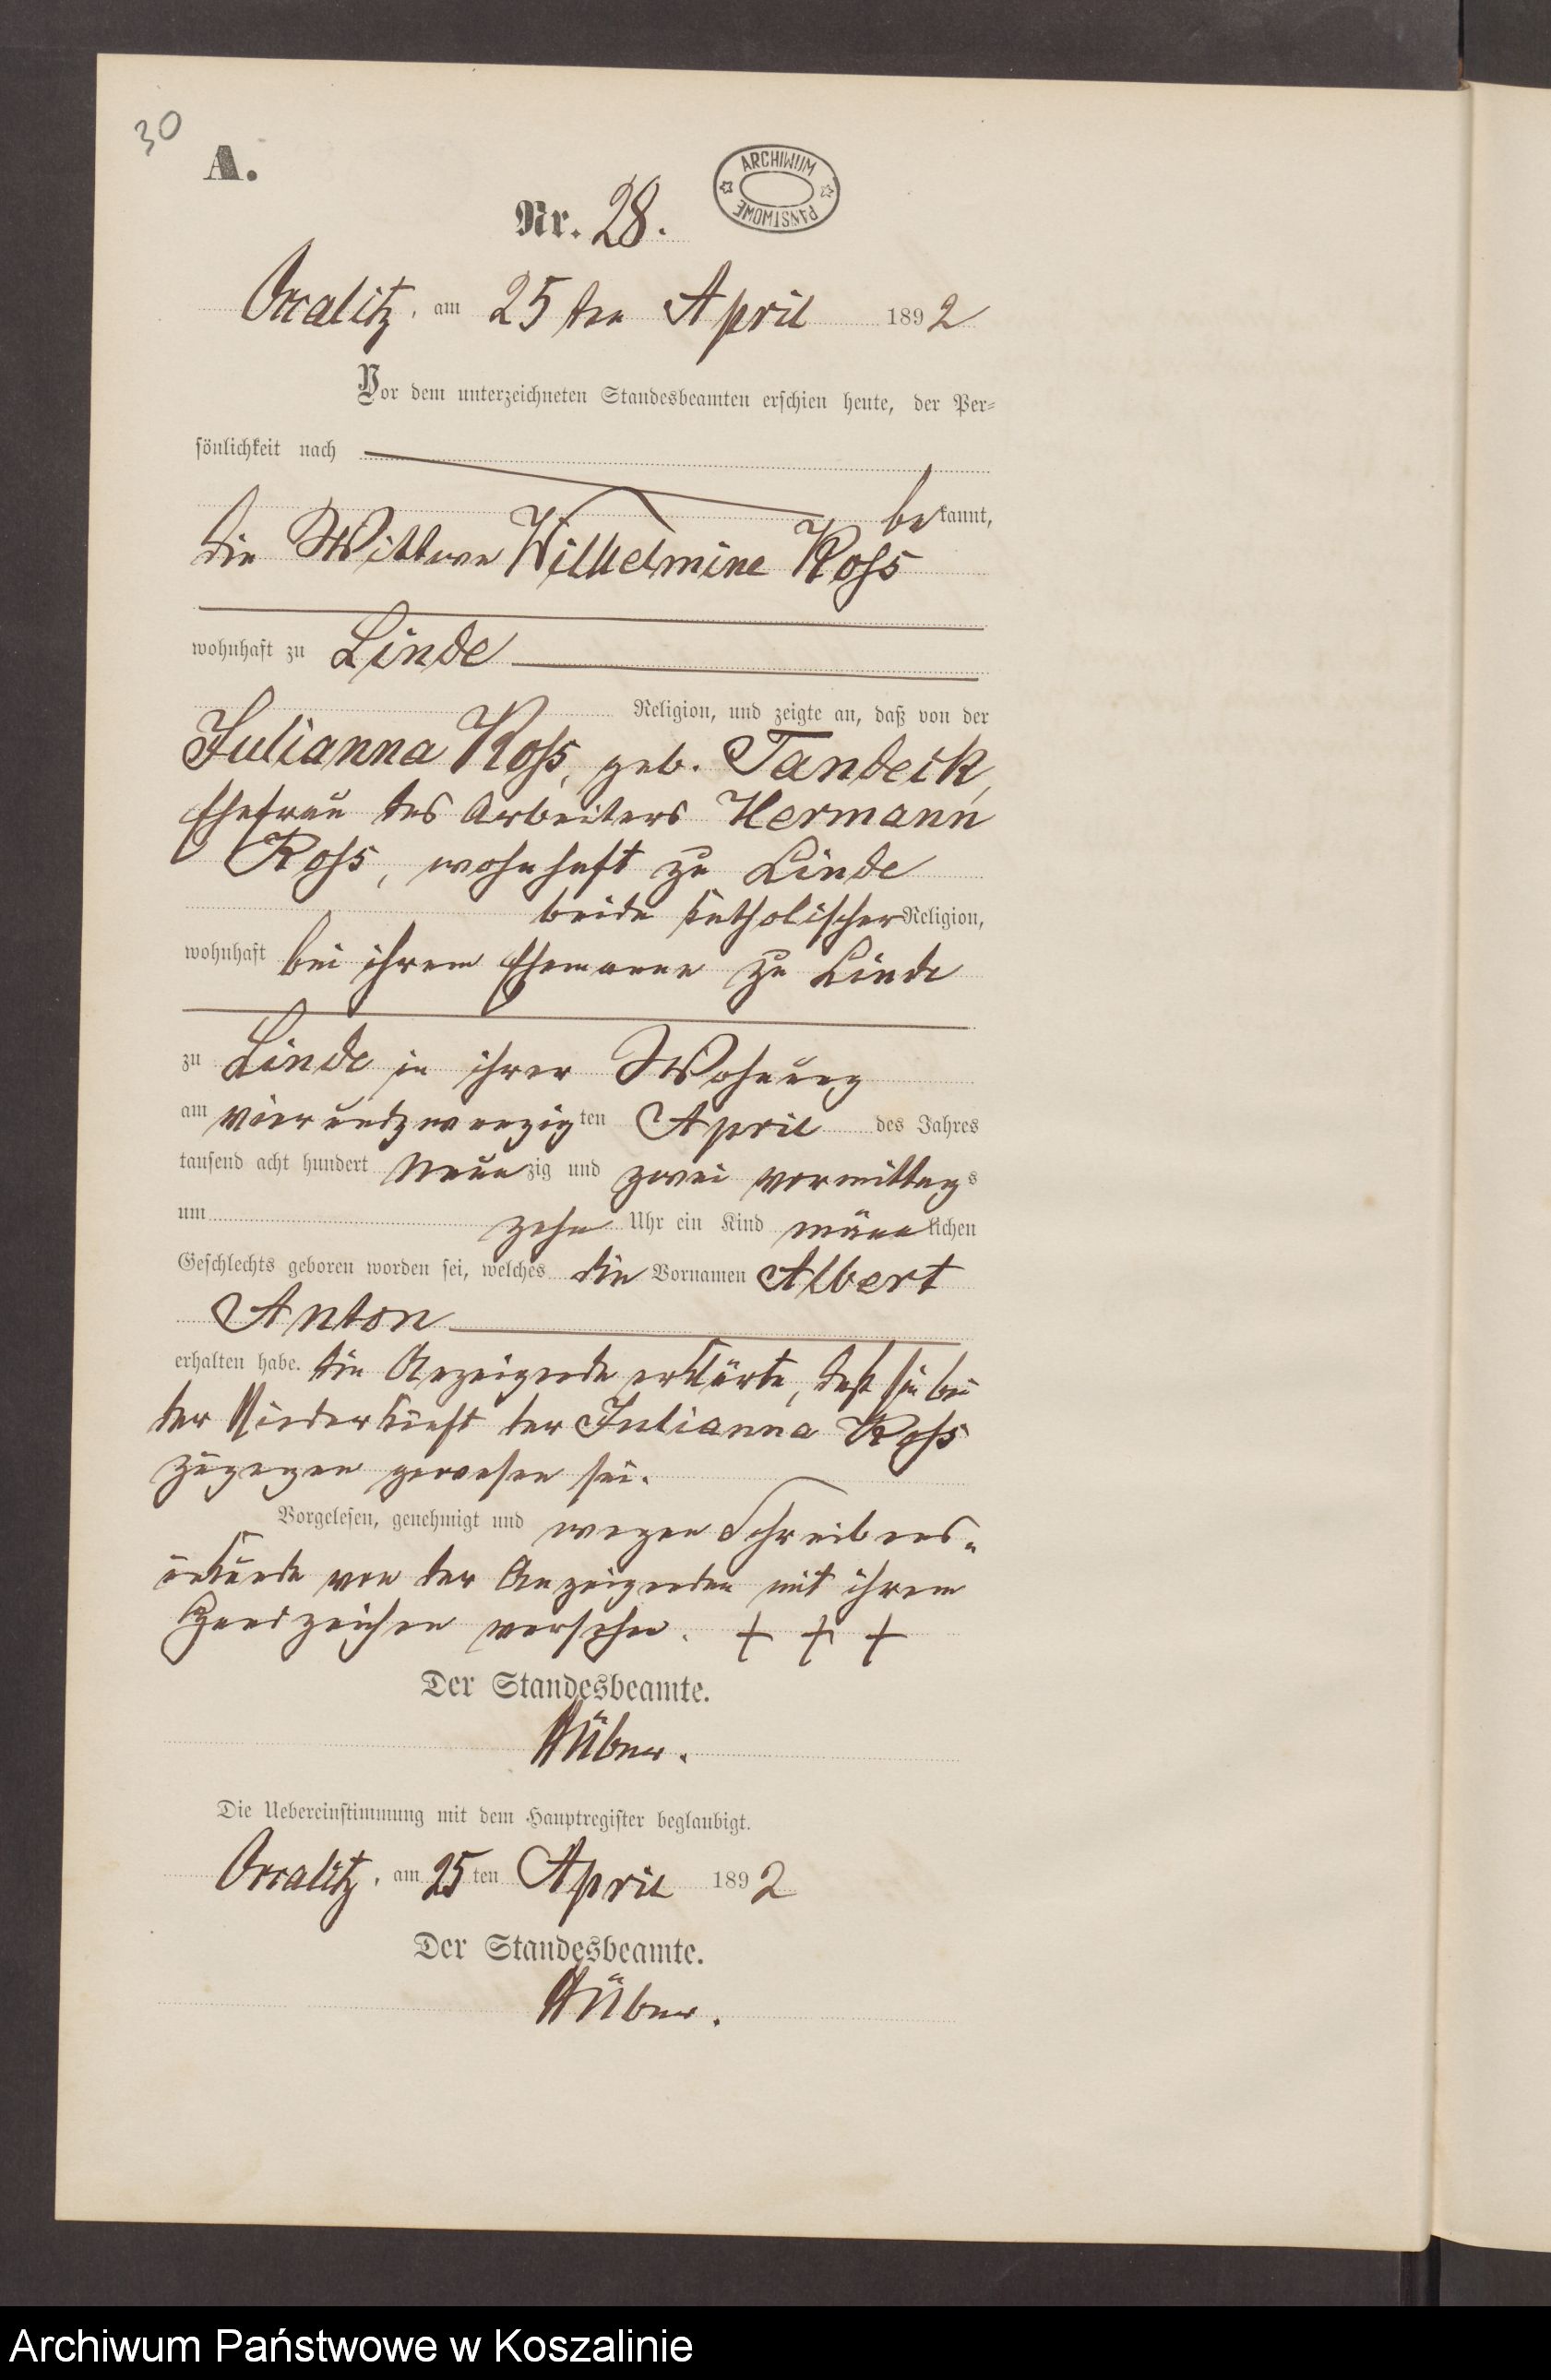 30
A.
ARCHIWUM PAŃSTWOWE
Nr. 28.
am 25ten April 1892
Vor dem unterzeichneten Standesbeamten erschien heute, der Per-
sönlichkeit nach
bekannt,
die Wittwe Wilhelmine Ross
wohnhaft zu Linde
Religion, und zeigte an, daß von der
Julianna Ross, geb. Tandeck,
Ehefrau des Arbeiters Hermann
Ross, wohnhaft zu Linde
beide katholischer Religion,
wohnhaft bei ihrem Ehemanne zu Linde
zu Linde in ihrer Wohnung
am vierundzwanzigten April des Jahres
tausend acht hundert neunzig und zwei vormittags
um zehn Uhr ein Kind männlichen
Geschlechts geboren worden sei, welches die Vornamen Albert
Anton
erhalten habe. die Anzeigende erklärte, daß sie bei
der Niederkunft der Julianna Ross
zugegen gewesen sei.
Vorgelesen, genehmigt und wegen Schreibens-
unkunde von der Anzeigenden mit ihrem
Handzeichen versehen. + + +
Der Standesbeamte.
Die Uebereinstimmung mit dem Hauptregister beglaubigt.
am 25ten April 1892
Der Standesbeamte.
Archiwum Państwowe w Koszalinie